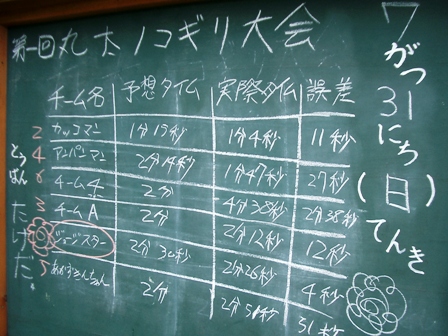 第一回丸太ノコギリ大会
チーム名 予想タイム 実際タイム 誤差
2 カッコマン 1分15秒 1分4秒 11秒
4 アンパンマン 2分14秒 1分47秒 27秒
6 チーム 2分 4分38秒 2分38秒
3 チームA 2分 2分12秒 12秒
ジョージスター 2分30秒 2分26秒 4秒
5 あかずきんちゃん 2分 2分31秒 31秒
7がつ31にち(日)てんき
とうばん たけだ